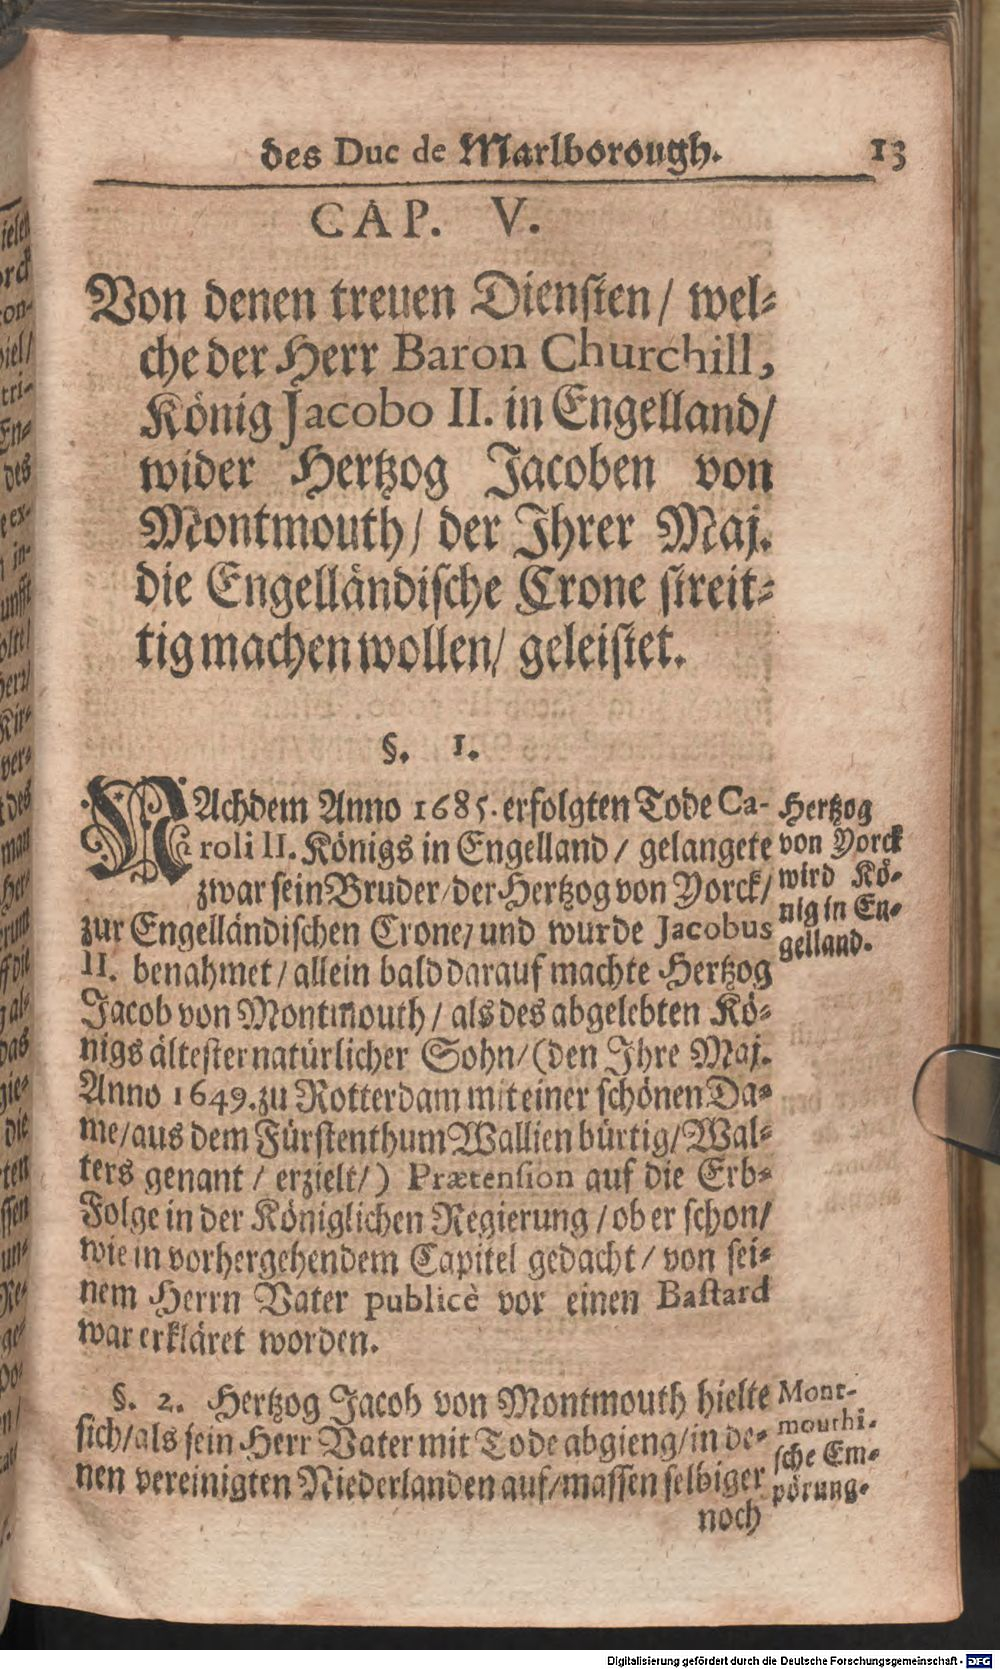 des Duc de Marlborough. 13
CAP. V.
Von denen treuen Diensten / wel-
che der Herr Baron Churchill,
König Jacobo II. in Engelland/
wider Hertzog Jacoben von
Montmouth / der Ihrer Maj.
die Engelländische Crone streit-
tig machen wollen / geleistet.
§. 1.
NAchdem Anno 1685. erfolgten Tode Ca-
roli II. Königs in Engelland / gelangete
zwar sein Bruder / der Hertzog von Yorck /
zur Engelländischen Crone / und wurde Jacobus
II. benahmet / allein bald darauf machte Hertzog
Jacob von Montmouth / als des abgelebten Kö-
nigs ältester natürlicher Sohn / (den Ihre Maj.
Anno 1649. zu Rotterdam mit einer schönen Da-
me / aus dem Fürstenthum Wallien bürtig / Wal-
ters genant / erzielt /) Prætension auf die Erb-
Folge in der Königlichen Regierung / ob er schon /
wie in vorhergehendem Capitel gedacht / von sei-
nem Herrn Vater publicè vor einen Bastard
war erkläret worden.
Hertzog
von Yorck
wird Kö-
nig in En-
gelland.
§. 2. Hertzog Jacob von Montmouth hielte
sich / als sein Herr Vater mit Tode abgieng / in de-
nen vereinigten Niederlanden auf / massen selbiger
noch
Mont-
mouthi-
sche Em-
pörung.
Digitalisierung gefördert durch die Deutsche Forschungsgemeinschaft - DFG